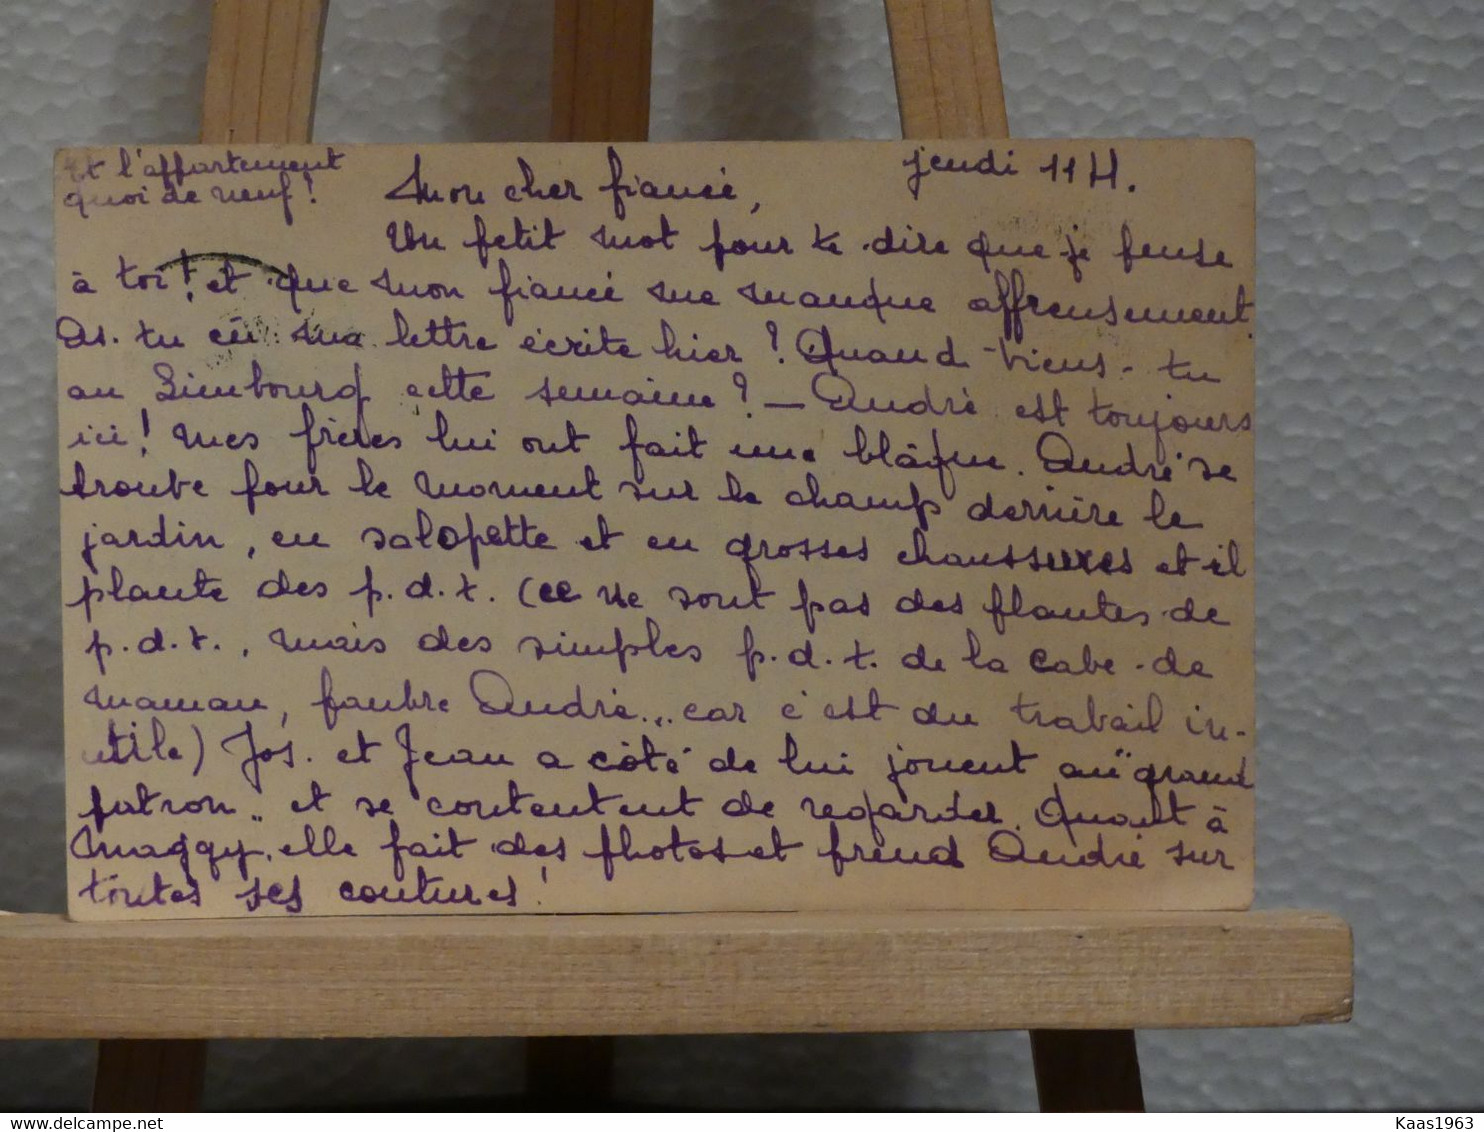 Et l'appartement
quoi de neuf!
jeudi 11 H.
Mon cher fiancé,
Un petit mot pour te dire que je pense
à toi! et que mon fiancé me manque affreusement.
As-tu eu ma lettre écrite hier? Quand viens-tu
au Limbourg cette semaine? — André est toujours
ici! mes frères lui ont fait une blâgue. André se
trouve pour le moment sur le champ derrière le
jardin, en salopette et en grosses chaussures et il
plante des p.d.t. (ce ne sont pas des plantes de
p.d.t., mais des simples p.d.t. de la cave de
maman, pauvre André... car c'est du travail in-
utile) Jos. et Jean a côté de lui jouent au "grand
patron" et se contentent de regarder. Quant à
Maggy, elle fait des photos et prend André sur
toutes ses coutures!
Kaas1963